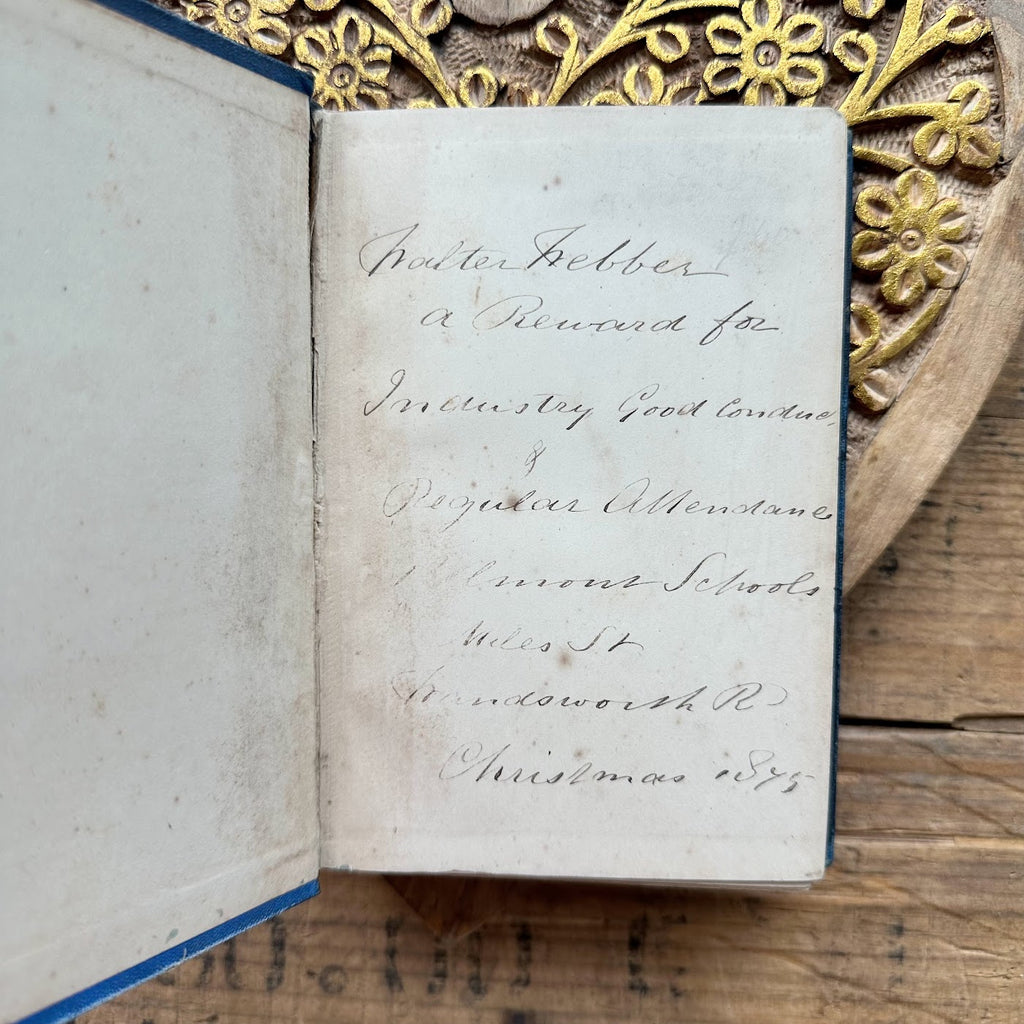 Walter Webber
a Reward for
Industry Good Conduc
&
Regular Attendance
Belmont Schools
Miles St
Wandsworth Rd
Christmas 1875